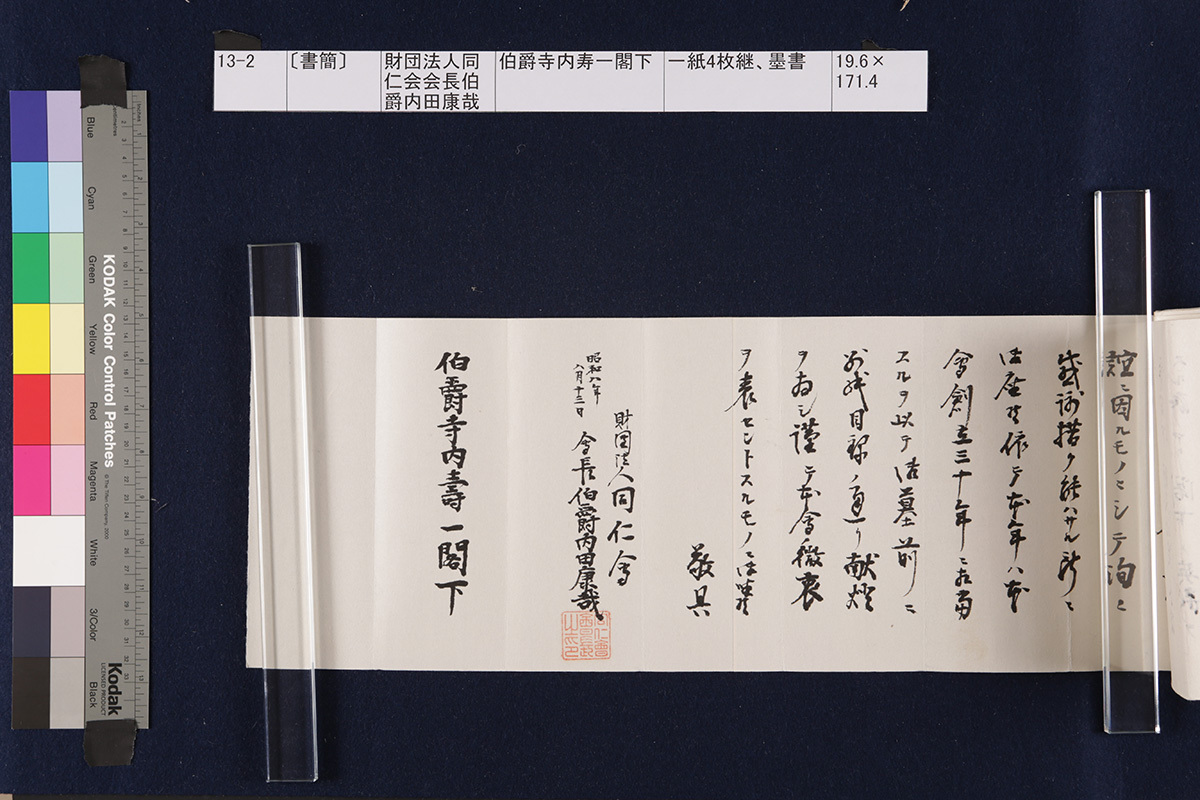 13-2
〔書簡〕
財団法人同
仁会会長伯
爵内田康哉
伯爵寺内寿一閣下
一紙4枚継、墨書
19.6×
171.4
誼ニ因ルモノニシテ洵ニ
感謝措ク能ハサル所ニ
御座候依テ本年ハ本
會創立三十年ニ相當
スルヲ以テ御墓前ニ
別紙目録ノ通り献燈
ヲ為シ謹テ本會微衷
ヲ表セントスルモノニ御座候
敬具
昭和八年
八月十三日
財団法人同仁會
會長伯爵内田康哉
伯爵寺内壽一閣下
KODAK Color Control Patches
© The Tiffen Company, 2000
Kodak
LICENSED PRODUCT
Blue
Cyan
Green
Yellow
Red
Magenta
White
3/Color
Black